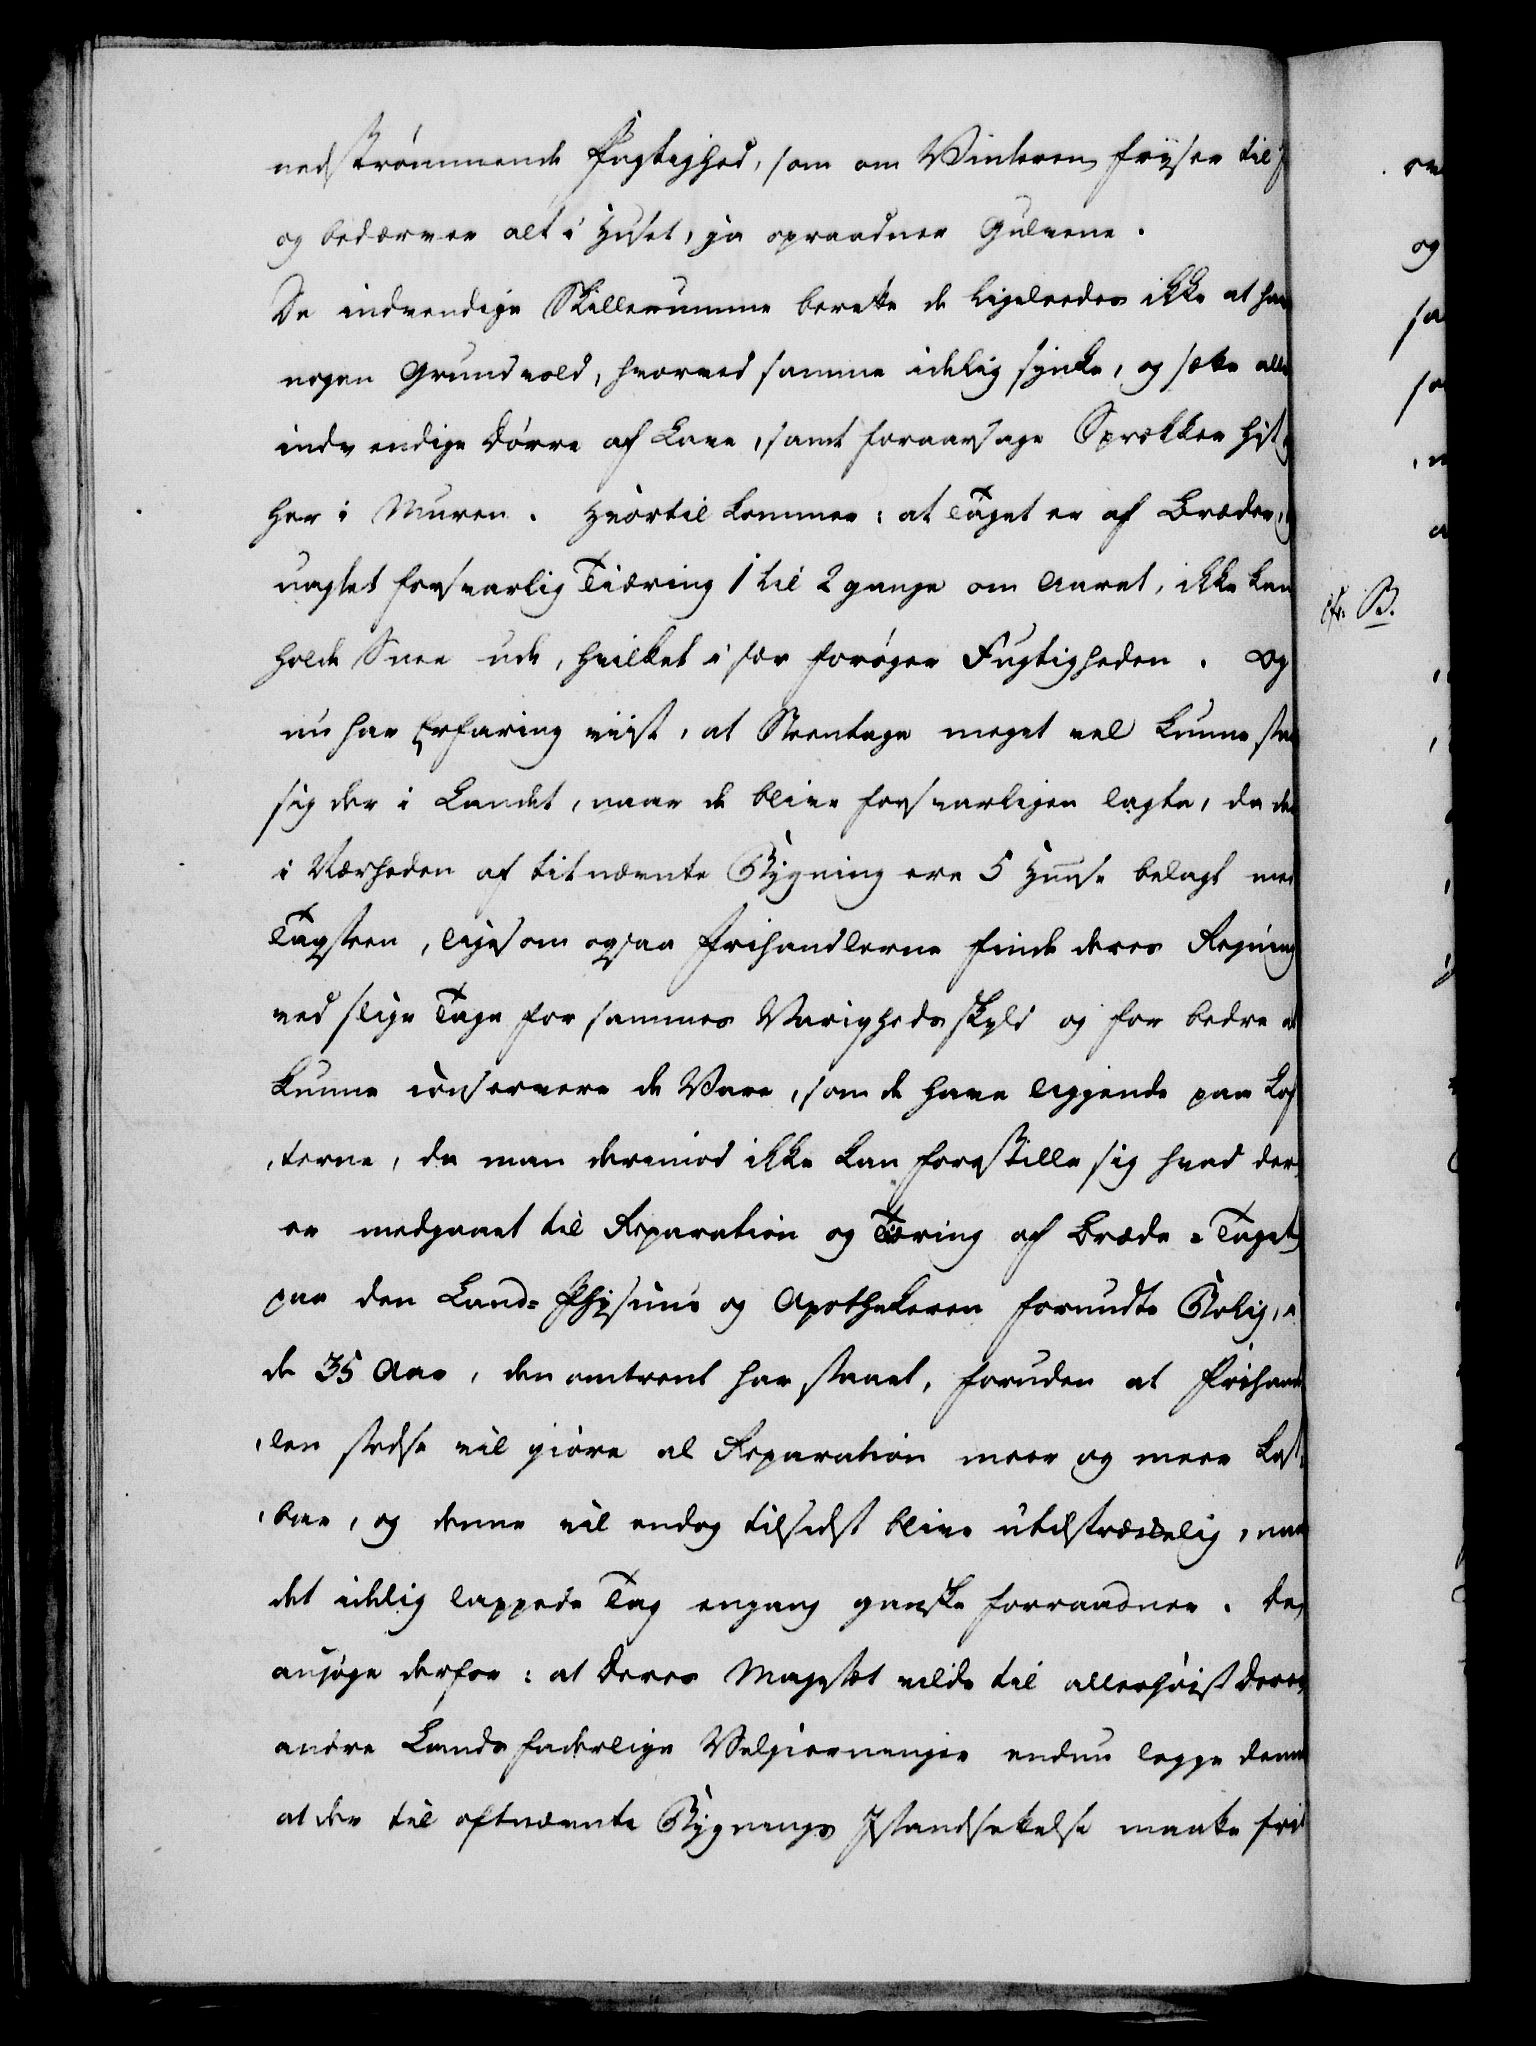 nedstrømmende Fugtighed, som om Vinteren fryser til
og bedærver alt i Huset, ja opraadner Gulvene.
De indvendige Skillerumme berette de ligeleedes ikke at have
nogen Grundvold, hvorved samme idelig synke, og sætte alle
indvendige Dørre af Lave, samt foraarsage Sprækker hist
her i Muren. Hvortil kommer: at Taget er af Bræder,
uagtet forsvarlig Tiæring 1 til 2 gange om Aaret, ikke kan
holde Snee ude, hvilket i sær forøger Fugtigheden. Og
nu har Erfaring viist, at Steentage meget vel kunne staae
sig der i Landet, naar de blive forsvarligen lagte, da der
i Nærheden af titnævnte Bygning ere 5 Huuse belagt med
Tagsteen, ligesom ogsaa Frihandlerne finde deres Regning
ved slige Tage for sammes Varigheds skyld og for bedre at
kunne conservere de Vare, som de have liggende paa Lof
terne, da man derimod ikke kan forestille sig hvad der
er medgaaet til Reparation og Tæring af Bræde-Taget
paa den Land-Physicus og Apothekeren forundte Bolig, i
de 35 Aar, den omtrent har staaet, foruden at Frihand
len stedse vil giøre al Reparation meer og meer kost
bar, og denne vil endog tilsidst blive utilstrækkelig, naar
det idelig lappede Tag engang ganske forraadner. De
ansøge derfor: at Deres Majestæt vilde til allerhøist Deres
andre Landsfaderlige Velgierninger endnu legge denne
at der til oftnævnte Bygnings Istandsættelse maatte
og
cfr. B.